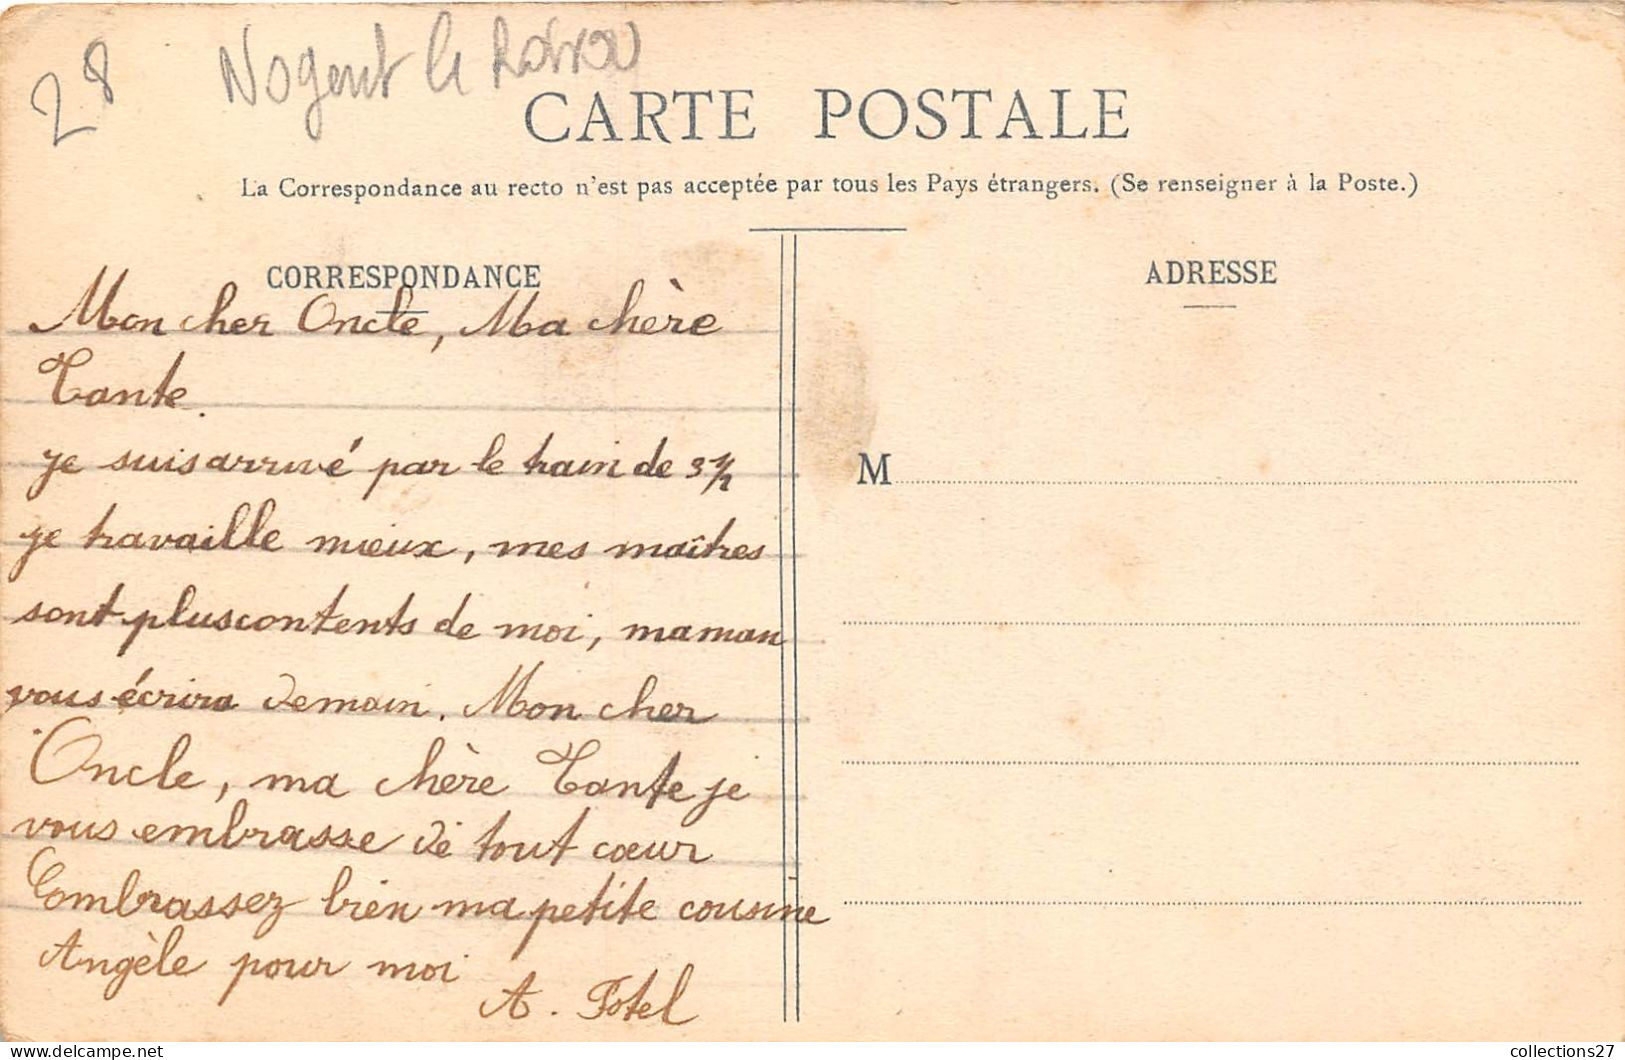 28
Nogent le Rotrou
CARTE POSTALE
La Correspondance au recto n'est pas acceptée par tous les Pays étrangers. (Se renseigner à la Poste.)
CORRESPONDANCE
Mon cher Oncle, Ma chère
Tante.
je suis arrivé par le train de 3 1/2
je travaille mieux, mes maîtres
sont plus contents de moi, maman
vous écrira demain. Mon cher
Oncle, ma chère Tante je
vous embrasse de tout cœur
Embrassez bien ma petite cousine
Angèle pour moi
A. Fotel
ADRESSE
M
collections27